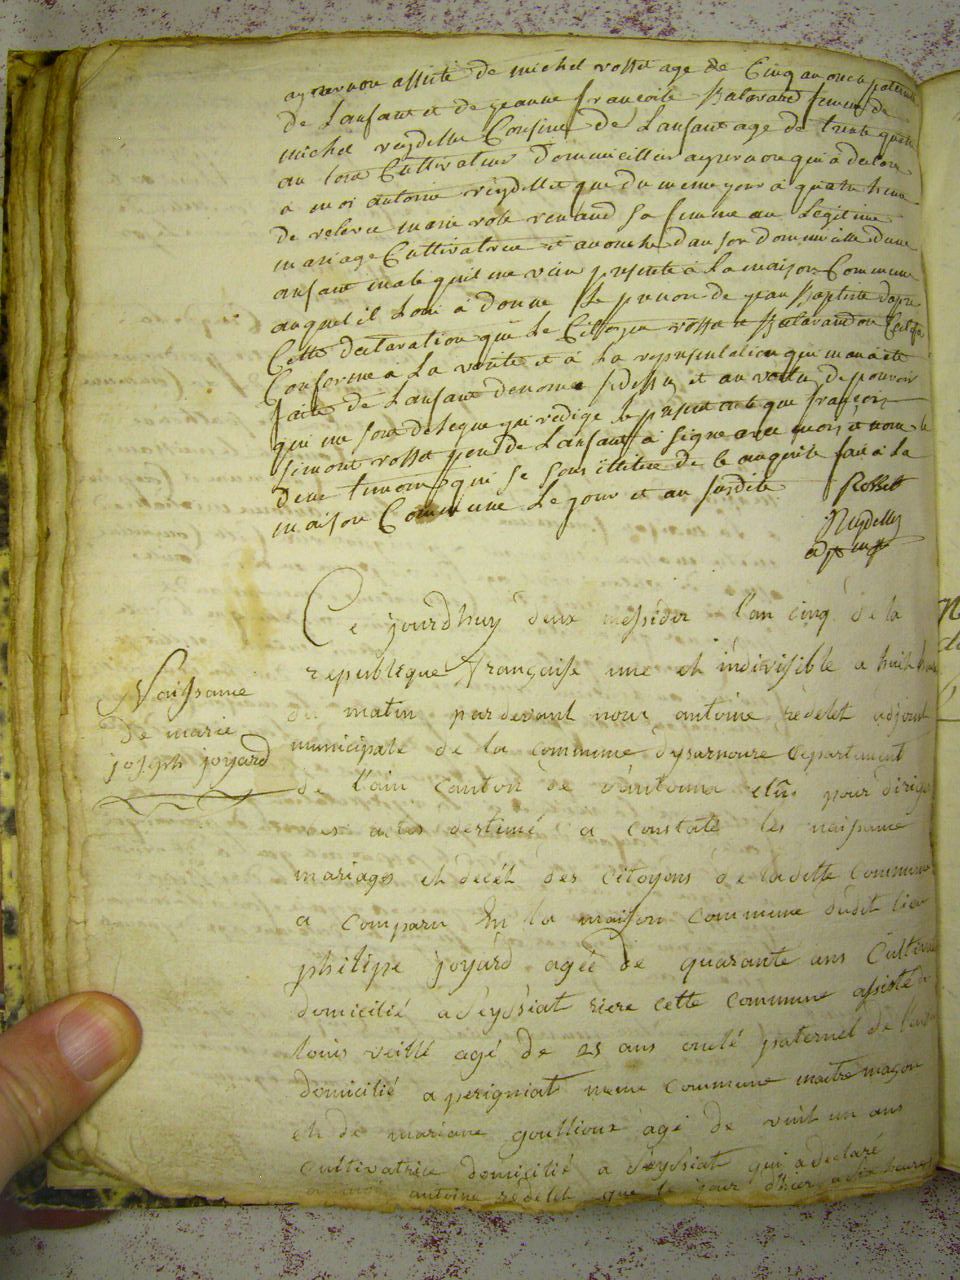 assisté de michel rosset age de Cinq
de Lanfant et de jeanne francoise Balavand femme de
michel reydellet Cousine de Lanfant age de trente quatre
an tous Cultivateur Domicillier qui a declare
a moi antoine reydellet que du meme jour a quatre heure
de relevee marie rose renaud sa femme an Legitime
mariage Cultivatrice et acouche dan son domicille dune
anfant male quil me vien presente à La maison Commune
auquel il Loui à donne Le prenon de jean Baptiste dapre
Cette declaration que Le Citoyen rosset Balavand on
Conforme a La verite et à La representation qui ma nà ete
faite de Lanfant denome sidessu et au vertu de pouvoir
qui me sont delegue jai redige le present acte que françois
simont rosset pere de Lanfant à signe avec moi et non le
deux temoin qui se sont de ce anquerir fait à La
maison Commune Le jour et an susdite Rosset
Reydellet
adj
Ce jourdhuy deux messidor l'an cinq de la
republique française une et indivisible a huit heure
Naissance du matin pardevant nous antoine rédelet adjoint
de marie municipale de la commune departement
joseph joyard de l'ain canton de pour diriger
les actes destiné a constaté les naissance
mariages et décét des citoyens de ladette commune
a comparu en la maison commune dudit lieu
philipe joyard agée de quarante ans Cultiva
domicilié a seyssiat riere cette commune assisté de
louis veillé agé de 25 ans onclé paternel de l'enfan
domicilié a perigniat meme commune maitre maçon
et de mariane goullioux agé de vint un ans
cultivatrice domicilié a seyssiat qui a declaré
a moi antoine rédelet que le jour d'hier a six heures